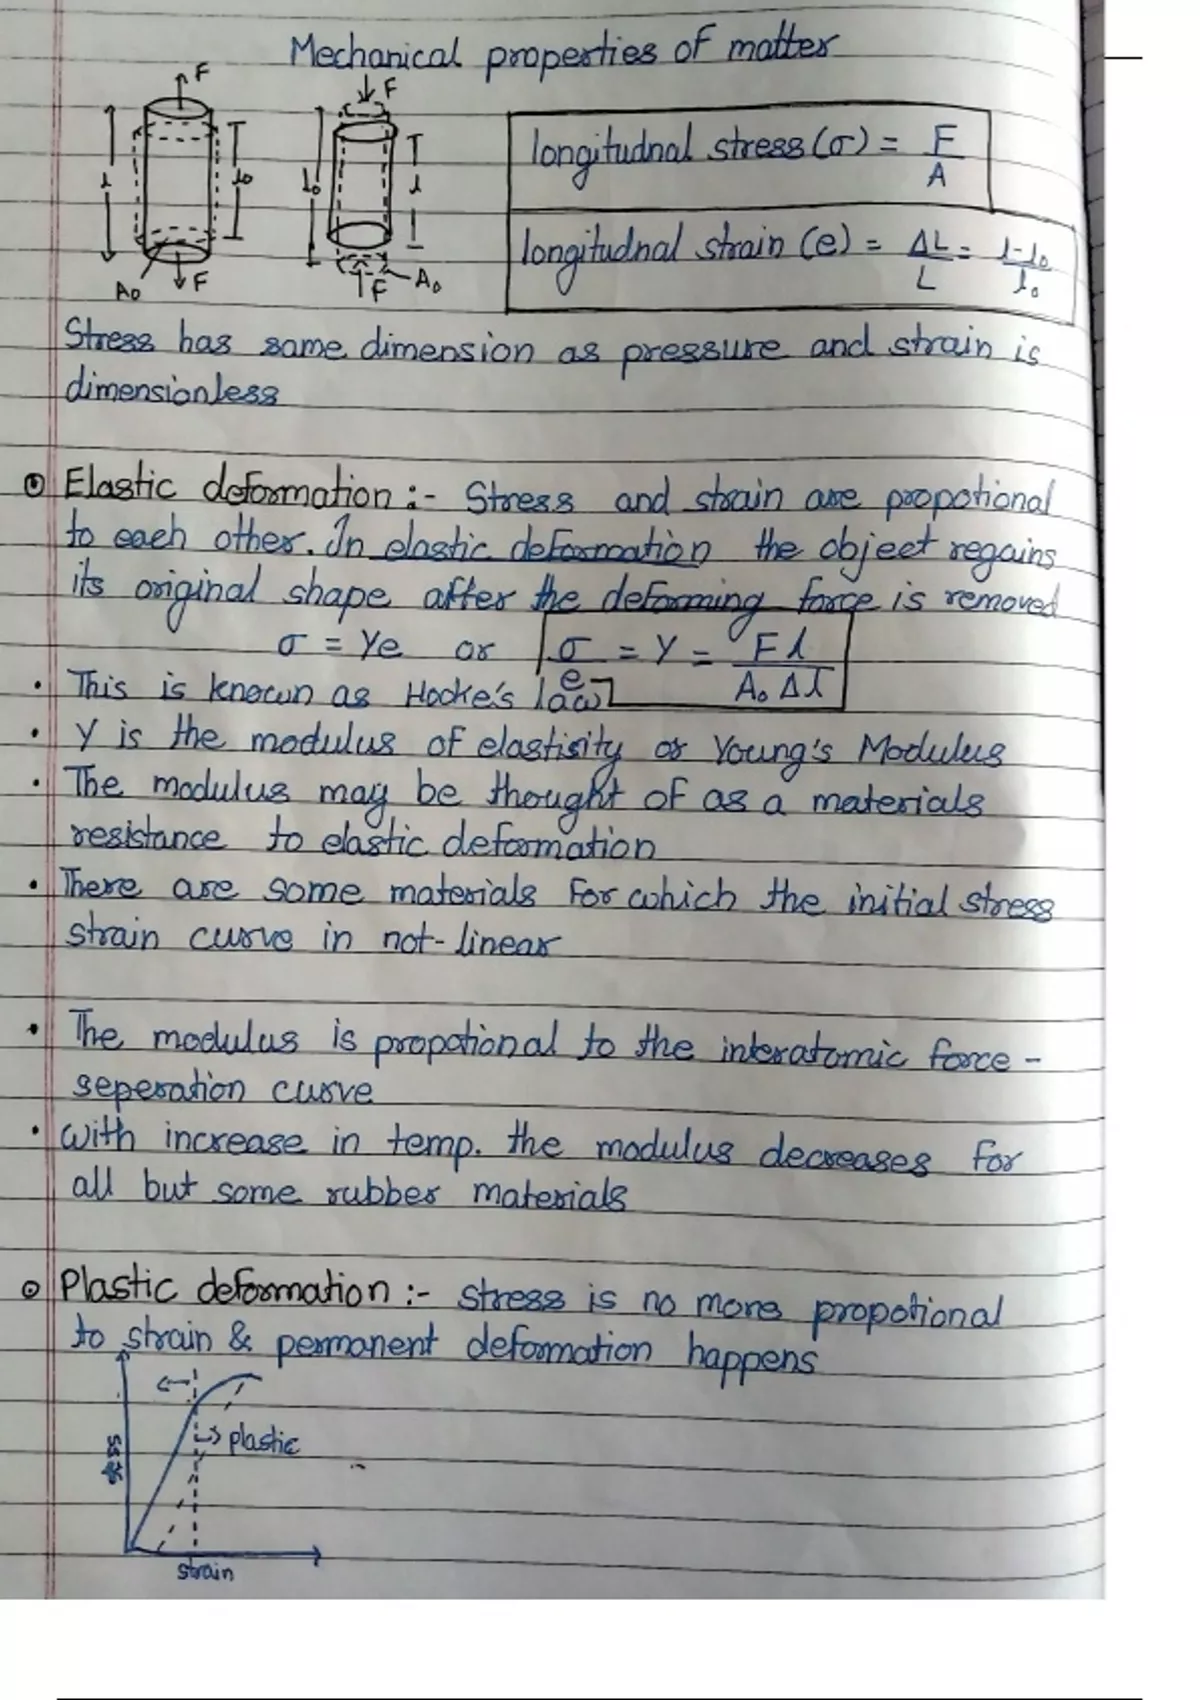 Mechanical properties of matter
F
F
l
l0
l0
l
A0
F
F
A0
longitudnal stress (σ) = F/A
longitudnal strain (e) = ΔL/L = l-l0/l0
Stress has same dimension as pressure and strain is
dimensionless
Elastic deformation :- Stress and strain are propotional
to each other. In elastic deformation the object regains
its original shape after the deforming force is removed
σ = Ye or σ/e = Y = Fl/A0 Δl
• This is known as Hooke's law
• Y is the modulus of elastisity or Young's Modulus
• The modulus may be thought of as a materials
resistance to elastic deformation
• There are some materials for which the initial stress
strain curve in not-linear
• The modulus is propotional to the interatomic force -
seperation curve
• with increase in temp. the modulus decreases for
all but some rubber materials
Plastic deformation :- stress is no more propotional
to strain & permanent deformation happens
plastic
strain